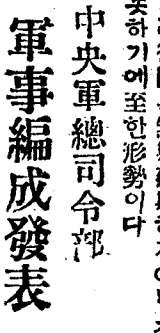 못하기에至한形勢이다
中央軍總司令部
軍事編成發表